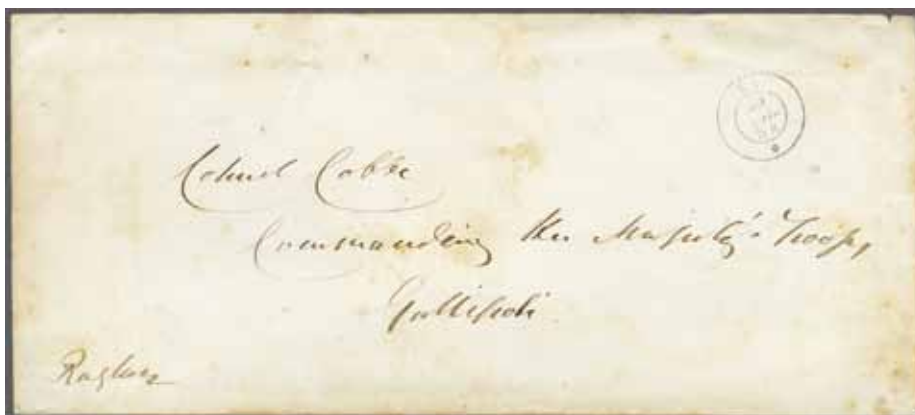 Colonel Cobbe
Commanding Her Majesty's Troops,
Gallipoli
Raglan